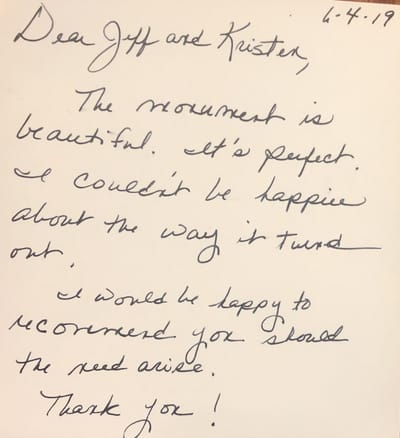 6-4-19
Dear Jeff and Kristen,
The monument is
beautiful. It's perfect.
I couldn't be happier
about the way it turned
out.
I would be happy to
recommend you should
the need arise.
Thank you!